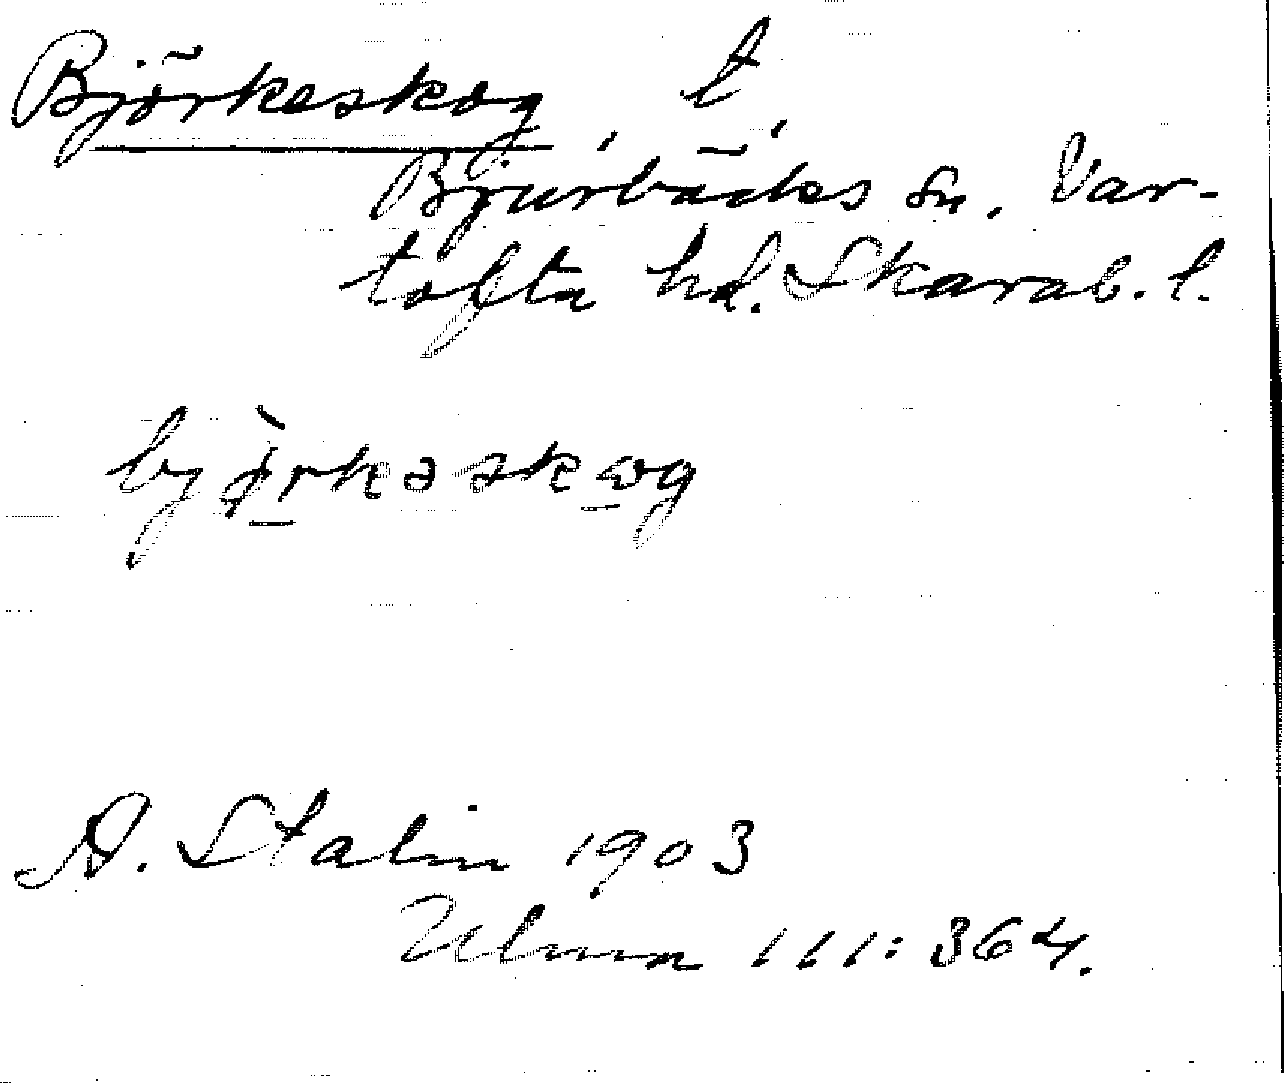 Björkeskog, t,
Bjurbäcks sn, Var-
tofta hd. Skarab. l.
bjørkəskog
A. Stalin 1903
Ulma 111:364.